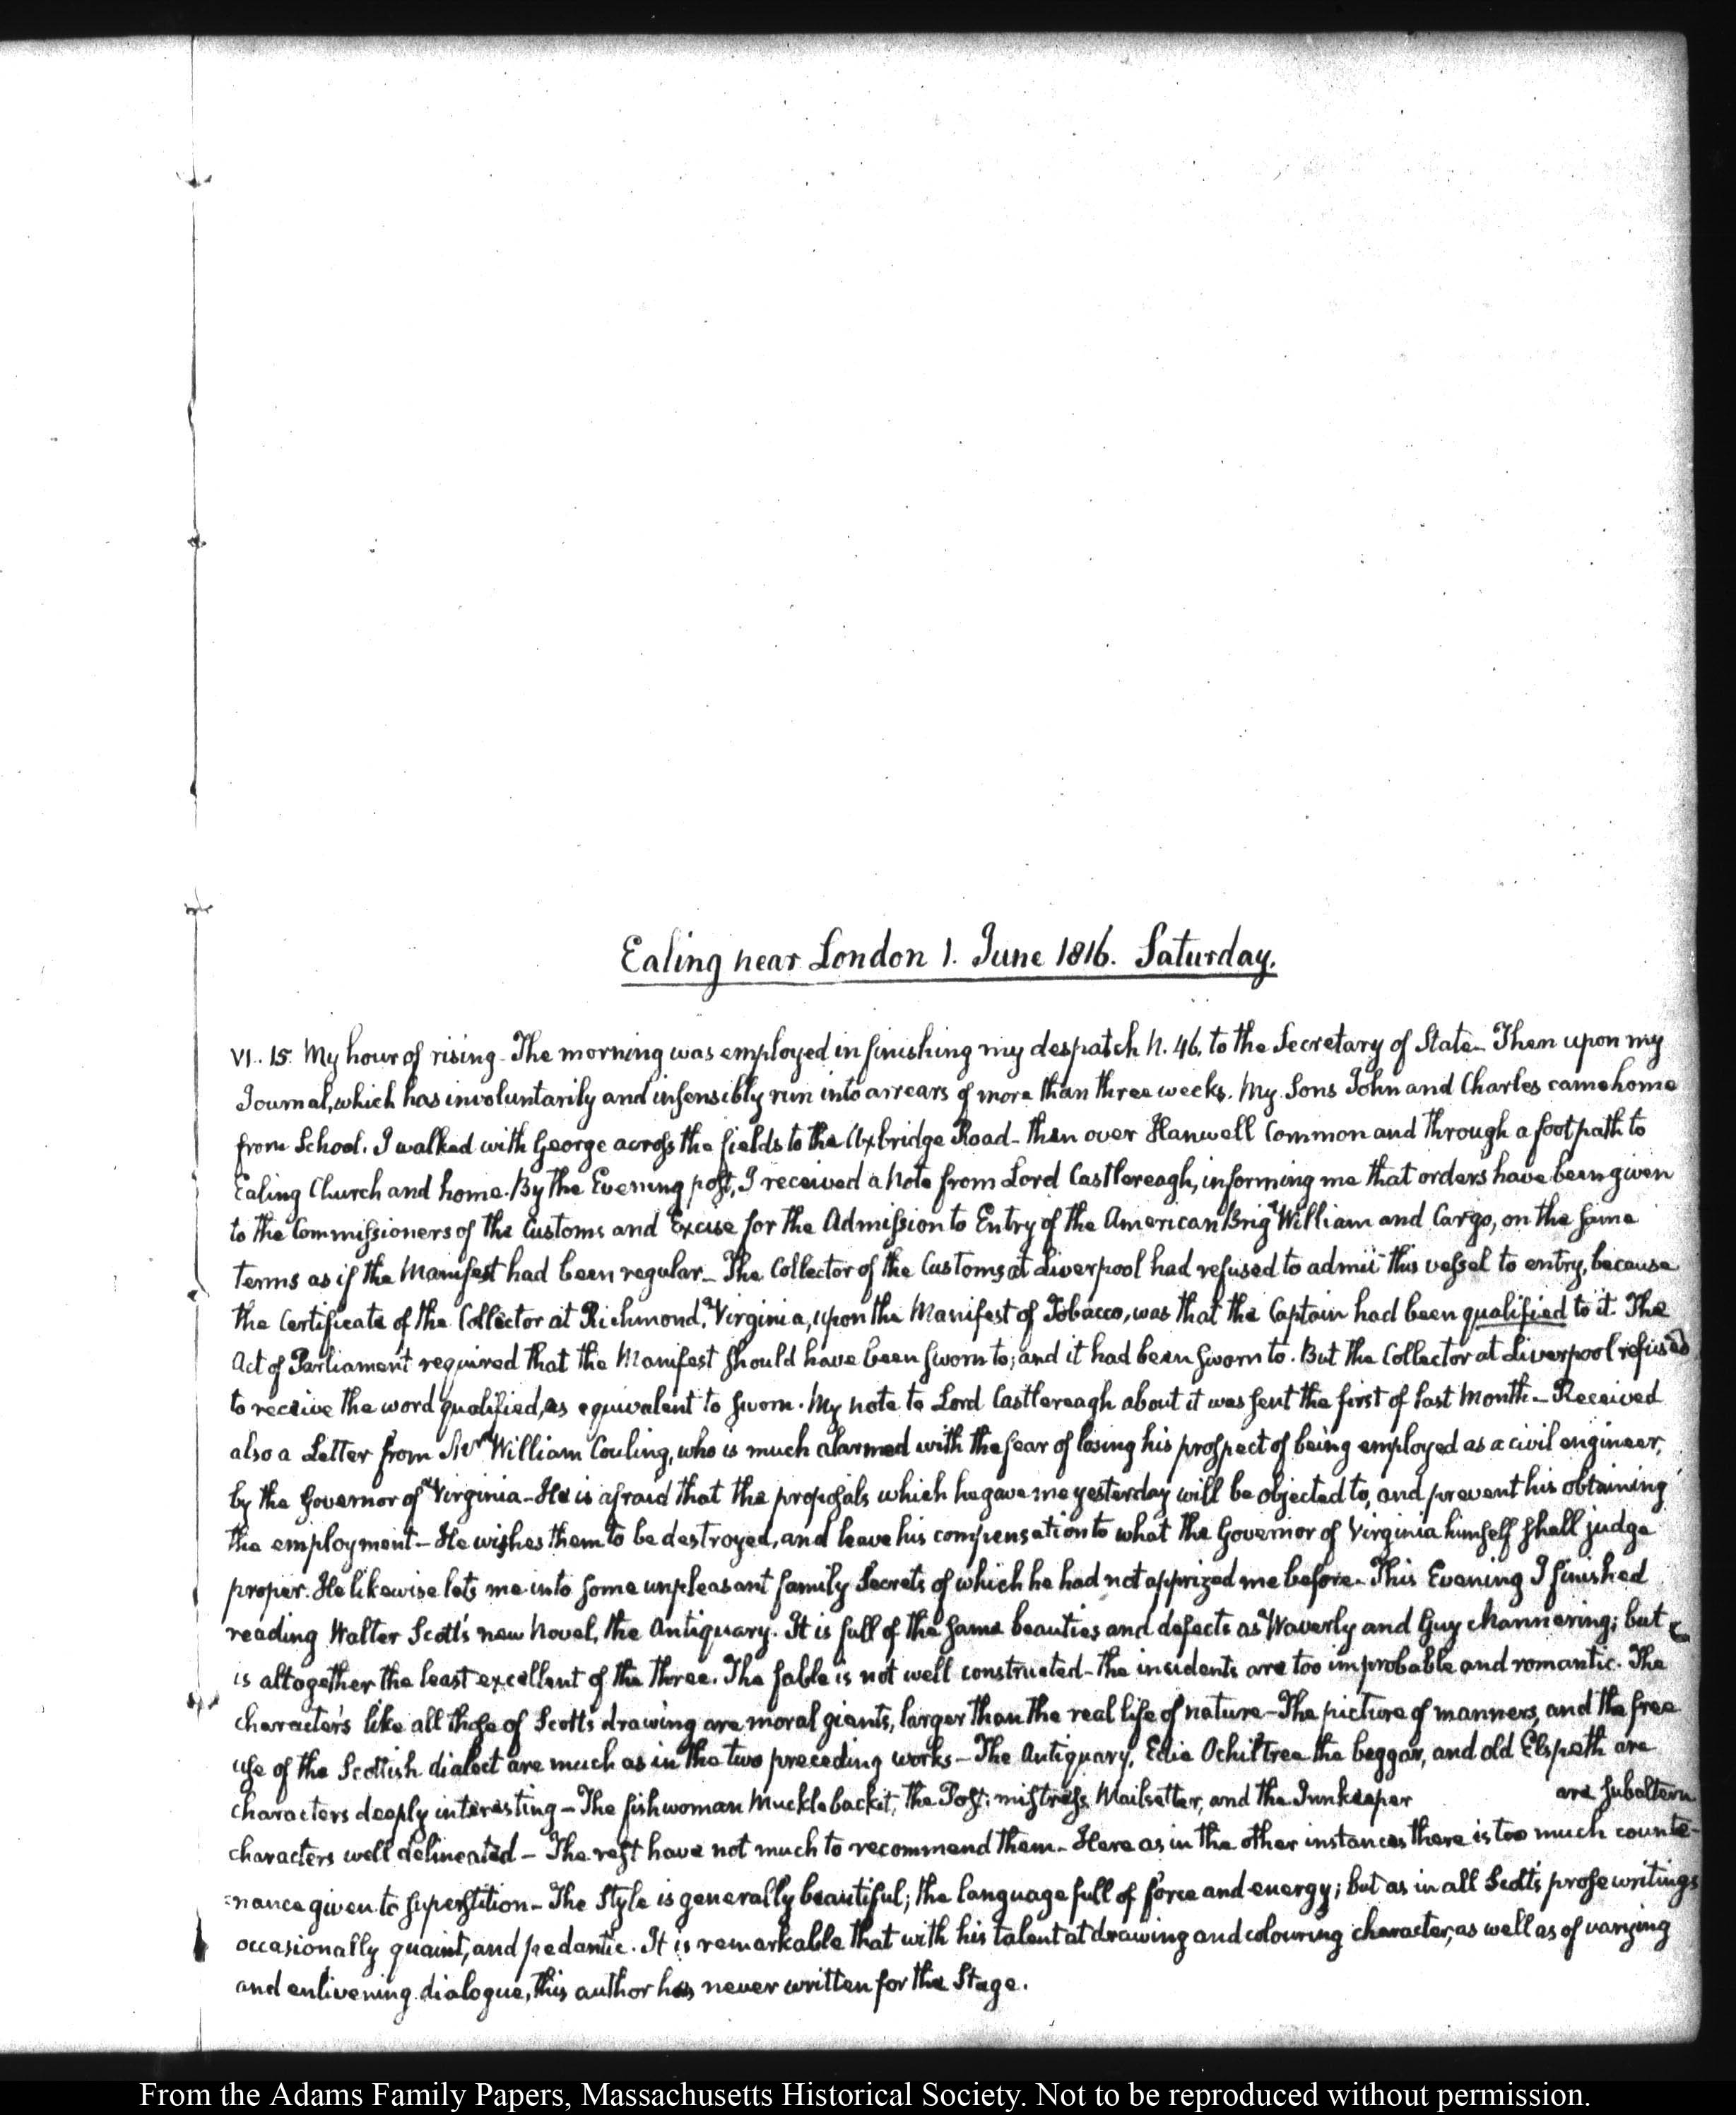 Ealing near London 1. June 1816. Saturday.
VI. 15. My hour of rising - The morning was employed in finishing my despatch N. 46. to the Secretary of State - Then upon my
Journal, which has involuntarily and insensibly run into arrears of more than three weeks. My Sons John and Charles came home
from School. I walked with George across the fields to the Uxbridge Road - then over Hanwell Common and through a foot path to
Ealing Church and home. By the Evening post, I received a Note from Lord Castlereagh, informing me that orders have been given
to the Commissioners of the Customs and Excise for the Admission to Entry of the American Brig William and Cargo, on the same
terms as if the Manifest had been regular - The Collector of the Customs at Liverpool had refused to admit this vessel to entry, because
the Certificate of the Collector at Richmond, Virginia, upon the Manifest of Tobacco, was that the Captain had been qualified to it. The
Act of Parliament required that the Manifest should have been sworn to; and it had been sworn to. But the Collector at Liverpool refused
to receive the word qualified, as equivalent to sworn. My note to Lord Castlereagh about it was sent the first of last Month - Received
also a Letter from Mr. William Couling, who is much alarmed with the fear of losing his prospect of being employed as a civil engineer,
by the Governor of Virginia - He is afraid that the proposals which he gave me yesterday will be objected to, and prevent his obtaining
the employment - He wishes them to be destroyed, and leave his compensation to what the Governor of Virginia himself shall judge
proper. He likewise lets me into some unpleasant family Secrets of which he had not apprized me before - This Evening I finished
reading Walter Scott's new Novel, the Antiquary. It is full of the same beauties and defects as Waverly and Guy Mannering; but
is altogether the least excellent of the three. The fable is not well constructed - the incidents are too improbable and romantic. The
characters like all those of Scott's drawing are moral giants, larger than the real life of nature - The picture of manners, and the free
use of the Scottish dialect are much as in the two preceding works - The Antiquary, Edie Ochiltree the beggar, and old Elspeth are
characters deeply interesting - The fishwoman Mucklebackit, the Post-mistress Mailsetter, and the Innkeeper are subaltern
characters well delineated - The rest have not much to recommend them - Here as in the other instances there is too much counte-
=nance given to superstition - The Style is generally beautiful; the language full of force and energy; but as in all Scott's prose writings
occasionally quaint, and pedantic. It is remarkable that with his talent at drawing and colouring character, as well as of varying
and enlivening dialogue, this author has never written for the Stage.
From the Adams Family Papers, Massachusetts Historical Society. Not to be reproduced without permission.